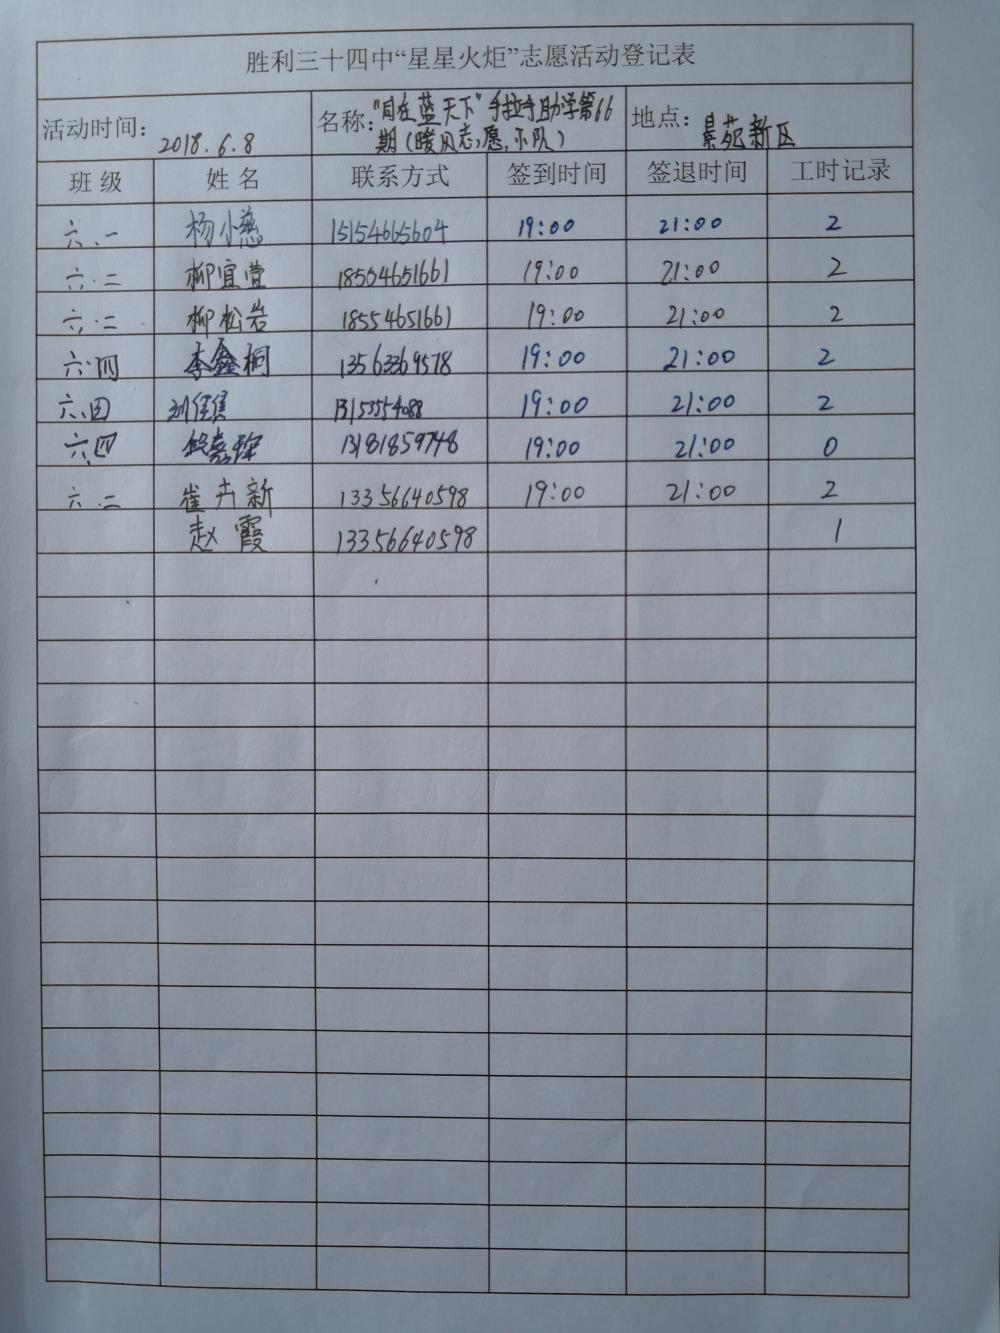 胜利三十四中“星星火炬”志愿活动登记表
活动时间: 2018.6.8 名称: “同在蓝天下”手拉手助学第66期(暖风志愿小队) 地点: 景苑新区
班级 姓名 联系方式 签到时间 签退时间 工时记录
六.一 杨小慈 15154665604 19:00 21:00 2
六.二 柳宜萱 18554651661 19:00 21:00 2
六.二 柳松岩 18554651661 19:00 21:00 2
六.四 李鑫桐 13563369578 19:00 21:00 2
六.四 13153554088 19:00 21:00 2
六.四 13181859748 19:00 21:00 0
六.二 崔卉新 13356640598 19:00 21:00 2
赵霞 13356640598 1